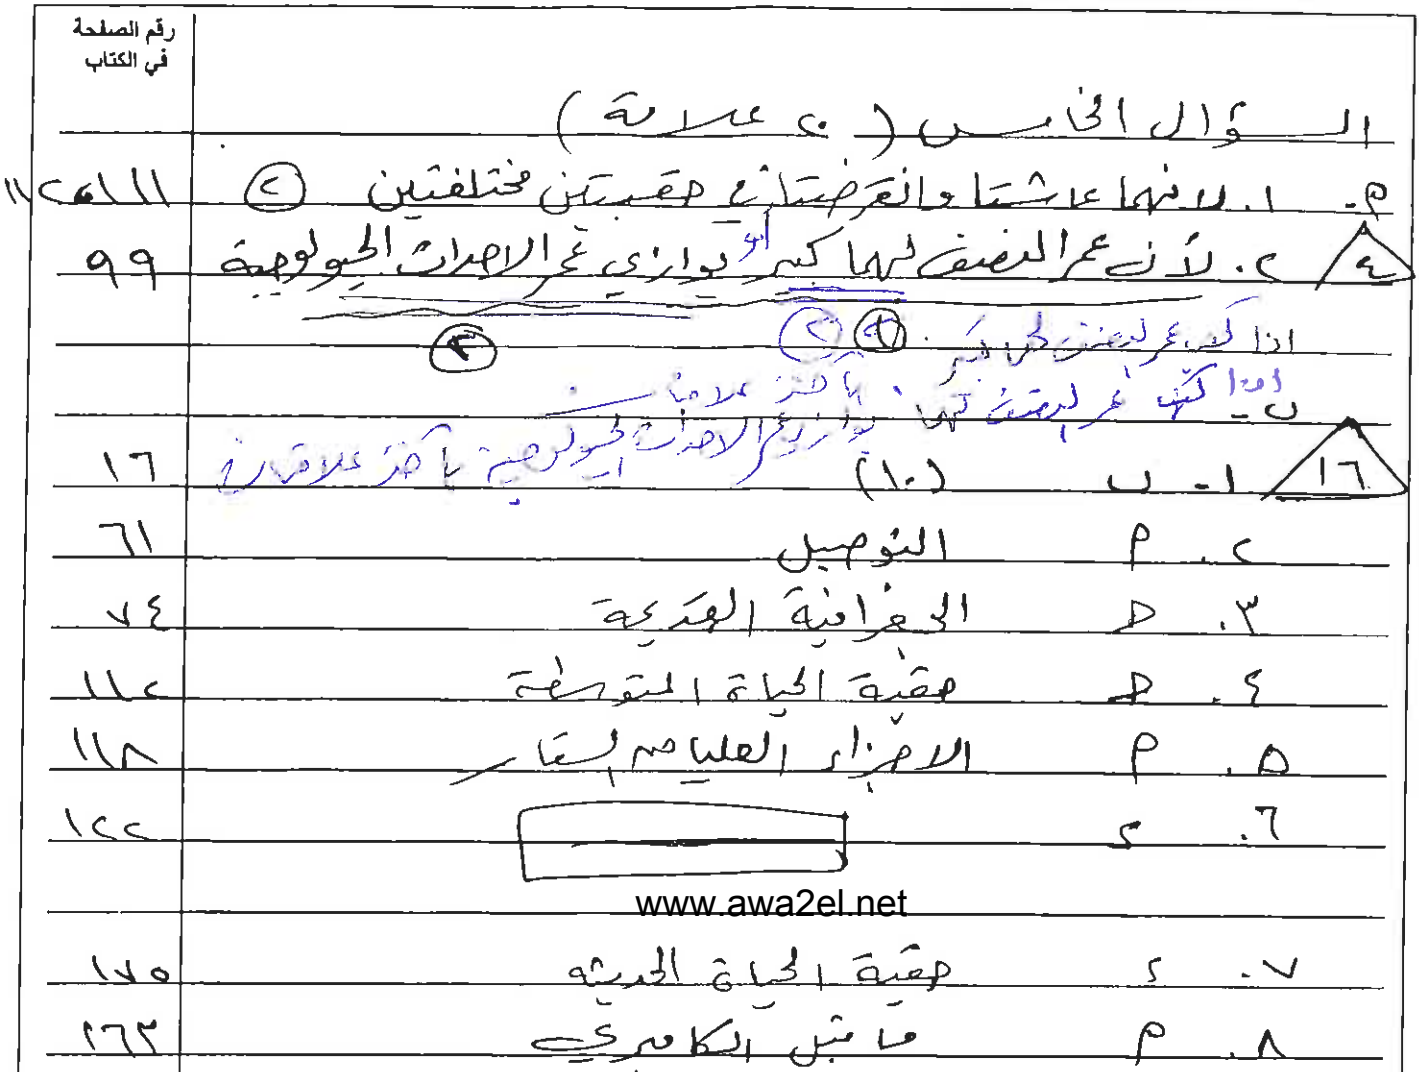 رقم الصفحة
في الكتاب
السؤال الخامس (٢٠ علامة)
٢. ١. لانهما عاشتا وانقرضتا في حقبتين مختلفتين (٢) ١١١، ١١٢
٤ ٢. لأن عمر النصف لهما كبير أو يوازي عمر الاحداث الجيولوجية ٩٩
اذا كتب عمر النصف لهما كبير. (٢) (٣)
اذا كتب عمر النصف لهما يأخذ علامتان
يوازي عمر الاحداث الجيولوجية يأخذ علامتان
١٦ ١- ب (١٠) ١٦
٢. م التوصيل ٦١
٣. ح الجغرافية القديمة ٧٤
٤. ح حقبة الحياة المتوسطة ١١٢
٥. م الاجزاء العليا من الستار ١١٨
٦. د ١٢٢
www.awa2el.net
٧. د حقبة الحياة الحديثه ١٧٥
٨. م ما قبل الكامبري ١٦٣